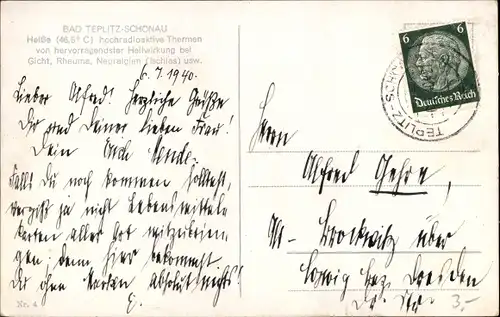 BAD TEPLITZ-SCHÖNAU
Heiße (46,5° C) hochradioaktive Thermen
von hervorragendster Heilwirkung bei
Gicht, Rheuma, Neuralgien (Ischias) usw.
6.7.1940.
Lieber Alfred! Herzliche Grüße
Dir und Deiner lieben Frau!
Dein
Falls Du noch kommen solltest,
vergiß ja nicht Lebensmittel-
karten aller Art mitzubrin-
gen; denn hier bekommst
Du ohne Marken absolut nichts!
Nr. 4
6 6
Deutsches Reich
TEPLITZ-SCHÖ
Herrn
Alfred Gehre,
Brockwitz über
Coswig Bez. Dresden
3.-